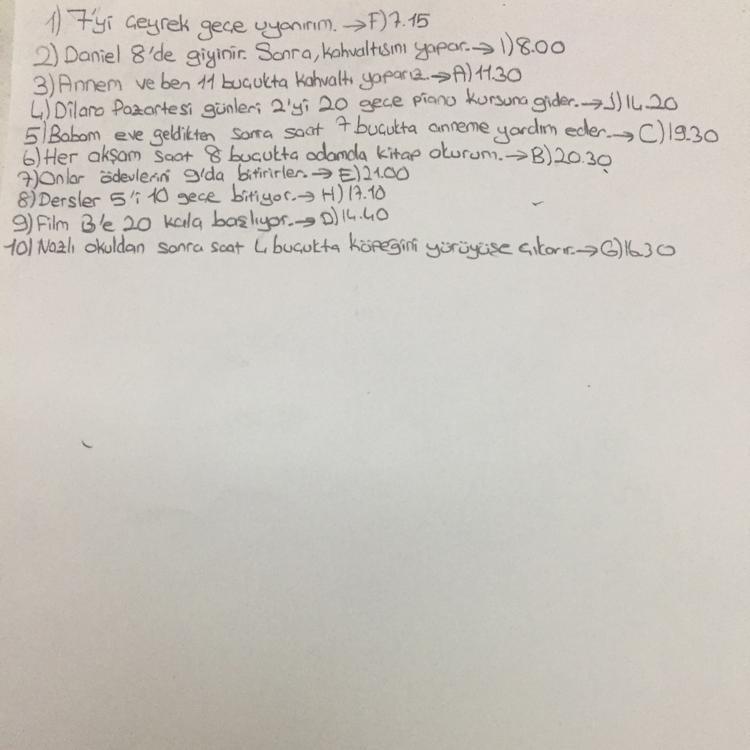 1) 7'yi çeyrek geçe uyanırım. → F) 7.15
2) Daniel 8'de giyinir. Sonra, kahvaltısını yapar. → I) 8.00
3) Annem ve ben 11 buçukta kahvaltı yaparız. → A) 11.30
4) Dilara Pazartesi günleri 2'yi 20 geçe piano kursuna gider. → J) 14.20
5) Babam eve geldikten sonra saat 7 buçukta anneme yardım eder. → C) 19.30
6) Her akşam saat 8 buçukta odamda kitap okurum. → B) 20.30
7) Onlar ödevlerini 9'da bitirirler. → E) 21.00
8) Dersler 5'i 10 geçe bitiyor. → H) 17.10
9) Film 3'e 20 kala başlıyor. → D) 14.40
10) Nazlı okuldan sonra saat 4 buçukta köpeğini yürüyüşe çıkarır. → G) 16.30